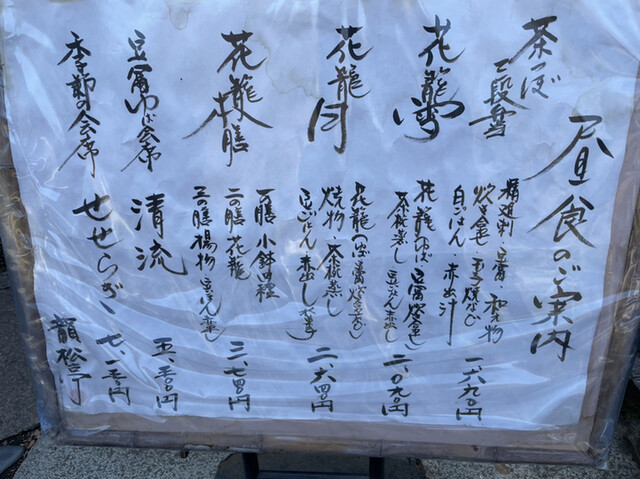 昼食のご案内
茶つぼ
三段重
精進刺・豆腐・和え物
炊き合せ・玉子焼など
白ごはん・赤出汁
一、六九〇円
花籠
花籠つぼ・豆腐炊合せ
茶碗蒸し・豆ごはん・赤出し
二、〇九〇円
花籠 月
焼物・茶碗蒸し
豆ごはん・赤出し
二、六四〇円
花籠膳
一の膳 小鉢
二の膳 花籠
三の膳 揚物
三、七四〇円
豆富ゆば会席
清流
五、五〇〇円
季節の会席
せせらぎ
七、一五〇円